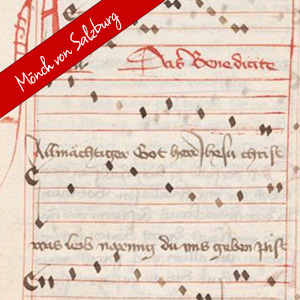 Mönch von Salzburg
Das Benedicite
Allmächtiger Got herr Jhesu christ
was leb du uns geben pist